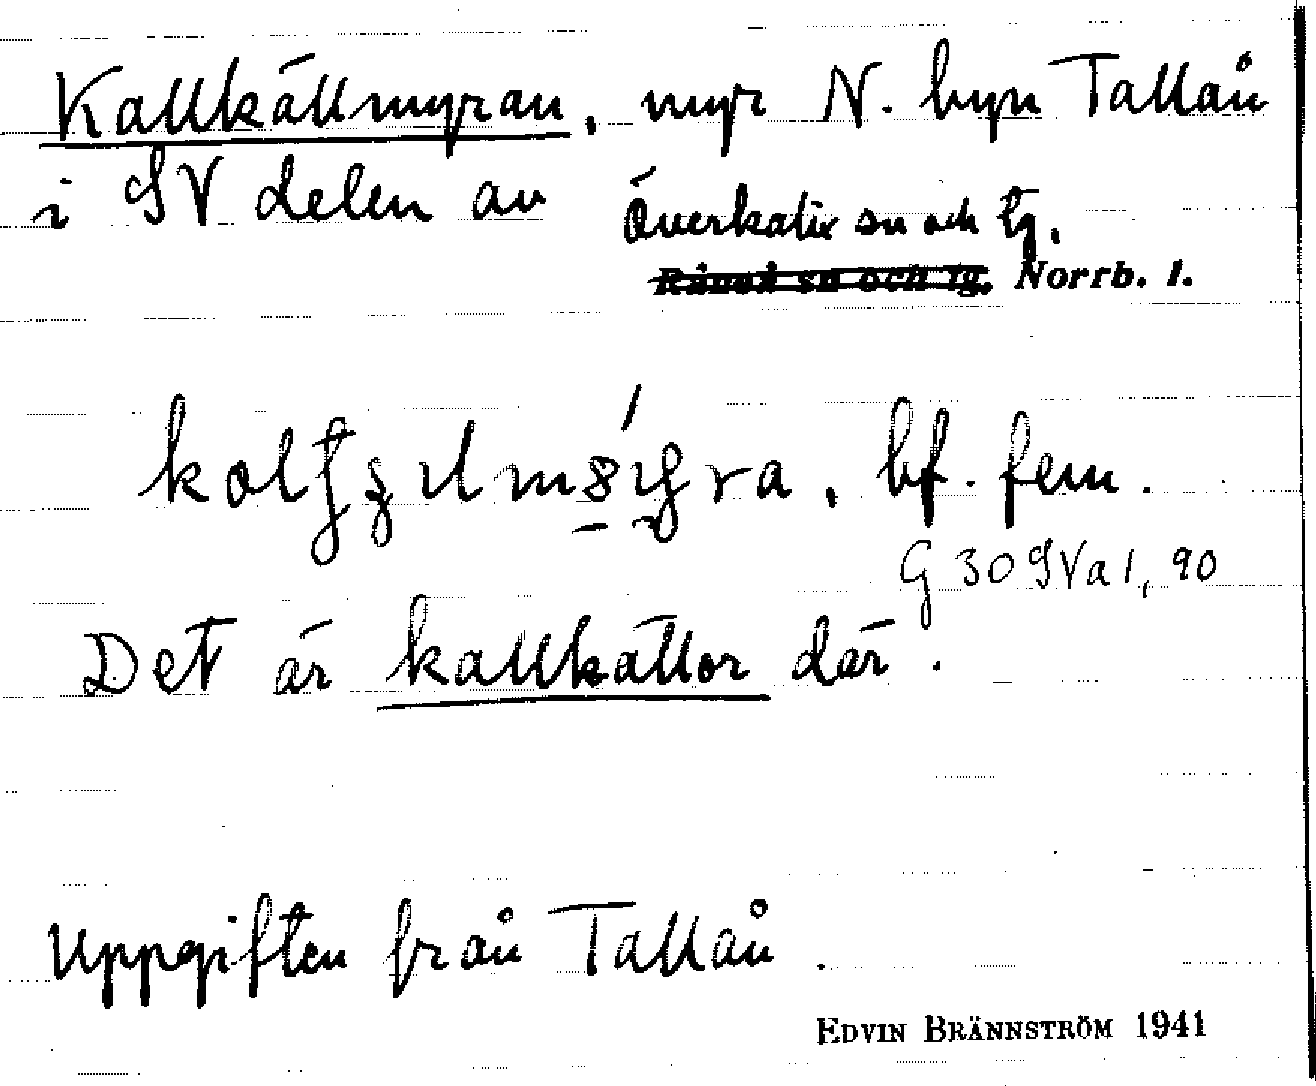 Kallkällmyran, myr N. byn Tallån
i SV delen av Överkalix sn och tg.
Råneå sn och tg. Norrb. l.
bf. fem.
G 30 SVa 1, 90
Det är kallkällor där.
Uppgiften från Tallån.
EDVIN BRÄNNSTRÖM 1941